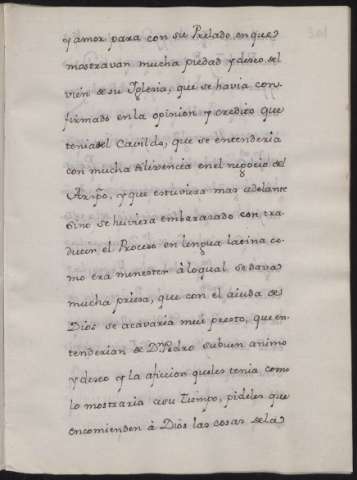 y amor para con su Prelado, en que
mostravan mucha piedad y deseo del
vien de su Yglesia, que se havia con-
firmado en la opinion y credito que
tenia del Cavildo, que se entenderia
con mucha diligencia en el negocio del
Arzpo, y que estuviera mas adelante
sino se huviera embarazado con tra-
ducir el Proceso en lengua latina co-
mo era menester á loqual se dava
mucha priesa, que con el aiuda de
Dios se acavaria mui presto, que en-
tenderian de Dn Pedro su buen animo
y deseo y la aficion queles tenia como
lo mostraria a su tiempo, pideles que
encomienden á Dios las cosas dela